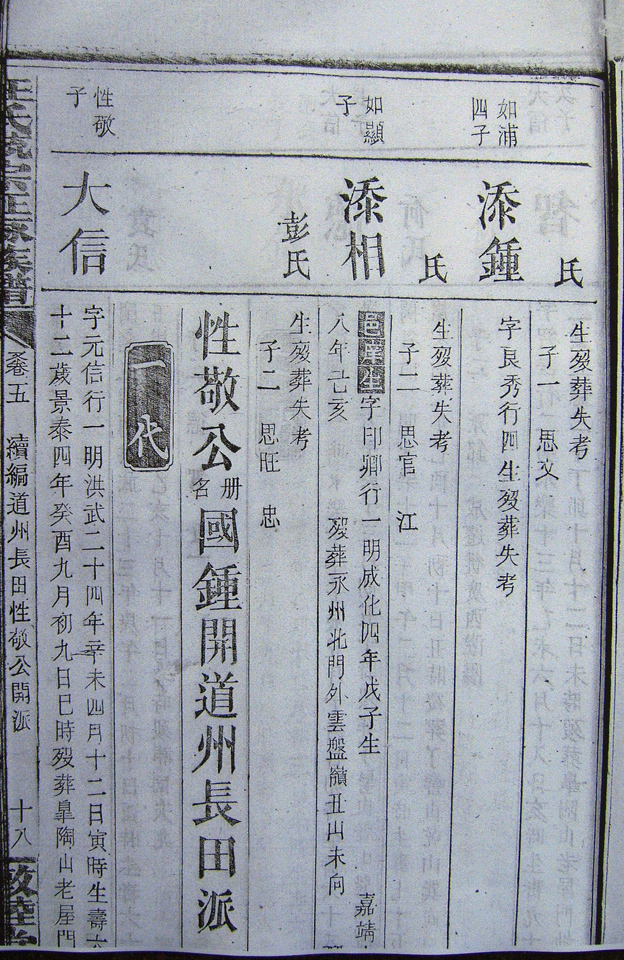 氏
生歿葬失考
子一 思文
如浦
四子
添鍾
字良秀行四生歿葬失考
氏
生歿葬失考
子二 思官 江
如顯
子
添相
邑庠生字印卿行一明成化四年戊子生 嘉靖
八年己亥 歿葬永州北門外雲盤嶺丑山未向
彭氏
生歿葬失考
子二 思旺 忠
性敬公册名國鍾開道州長田派
一代
性敬
子
大信
字元信行一明洪武二十四年辛未四月十二日寅時生壽六
十二歲景泰四年癸酉九月初九日巳時歿葬臯陶山老屋門
卷五 續編道州長田性敬公開派 十八